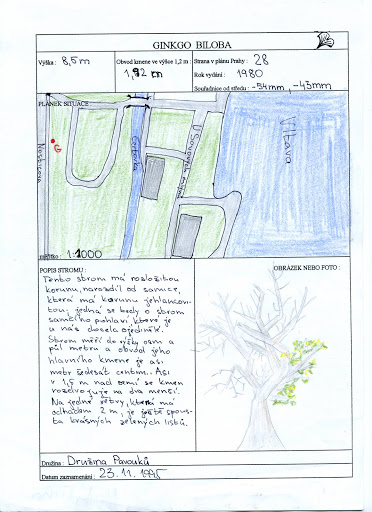 GINKGO BILOBA
Výška : 8,5 m
Obvod kmene ve výšce 1,2 m :
1,92 m
Strana v plánu Prahy : 28
Rok vydání : 1980
Souřadnice od středu : -54mm, -43mm
PLÁNEK SITUACE
G
Čertovka
U Sovových mlýnů
Vltava
měřítko : 1:1000
POPIS STROMU :
Tento strom má rozložitou
korunu, narozdíl od samice,
která má korunu jehlancovi-
tou, jedná se tedy o strom
samčího pohlaví které je
u nás docela ojedinělé.
Strom měří do výšky osm a
půl metru a obvod jeho
hlavního kmene je asi
metr šedesát centim.. Asi
v 1,5 m nad zemí se kmen
rozdvojuje na dva menší.
Na jedné větvy, která má
odhadem 2 m, je ještě spous-
ta krásných zelených listů.
OBRÁZEK NEBO FOTO :
Družina : Družina Pavouků
Datum zaznamenání : 23. 11. 1995